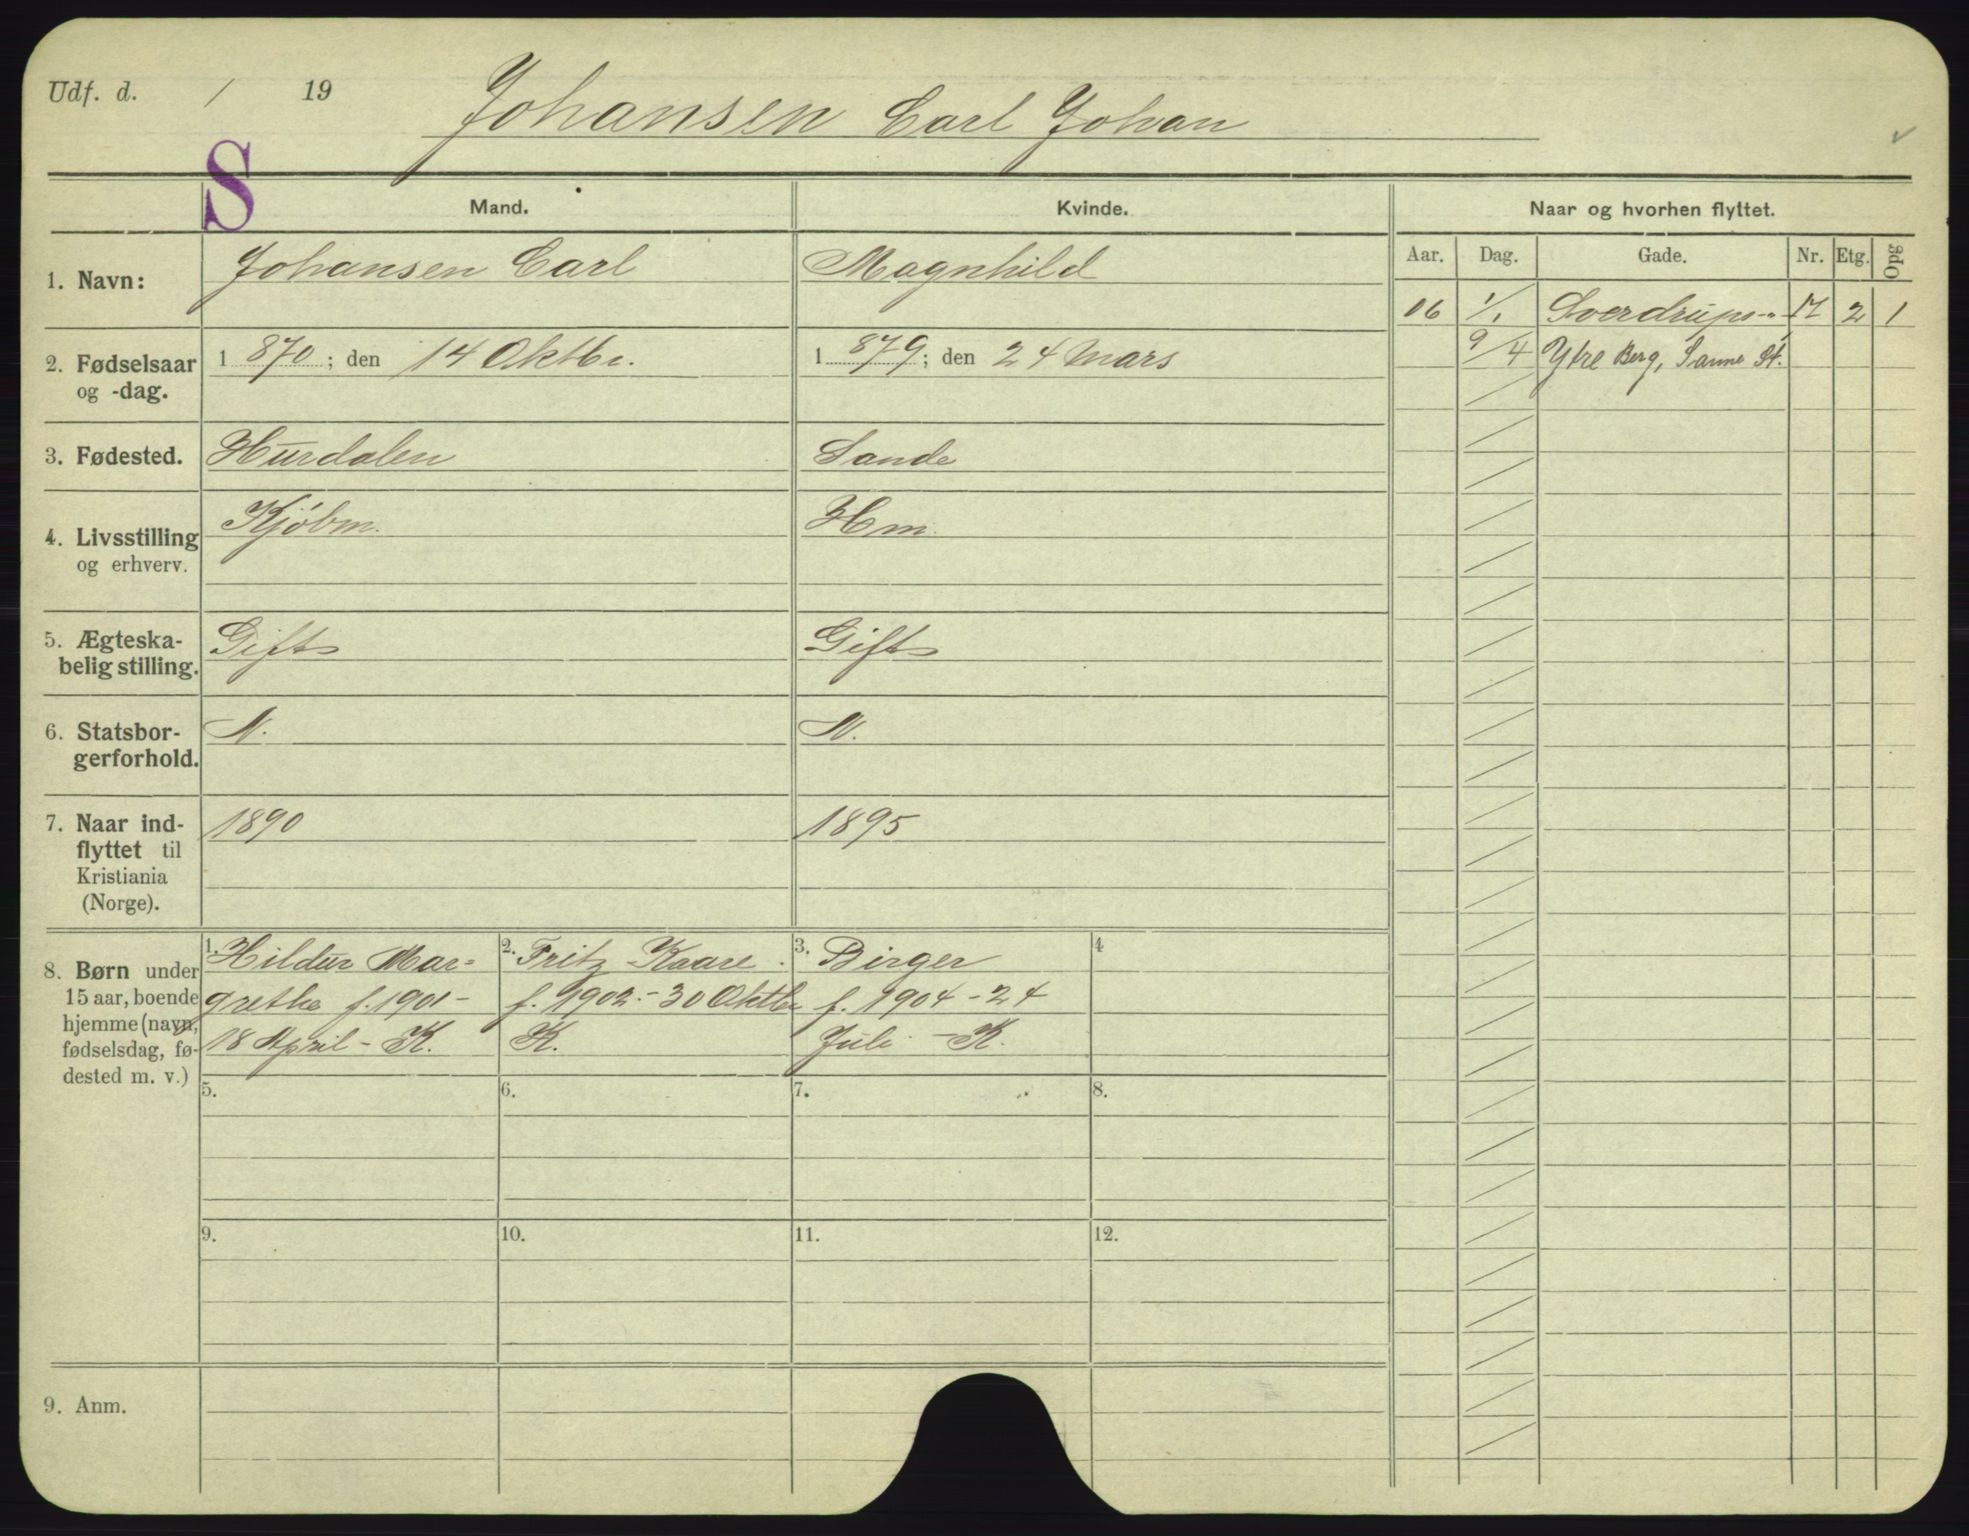 Udf. d. / 19
Johansen Carl Johan
S
Mand. Kvinde. Naar og hvorhen flyttet.
Aar. Dag. Gade. Nr. Etg. Opg
1. Navn: Johansen Carl Magnhild
06 1/1 Sverdrups-" 17 2 1
9/4 Ytre Berg, Sanne St.
2. Fødselsaar 1 870; den 14 Oktbr. 1 879; den 24 Mars
og -dag.
3. Fødested. Hurdalen Sande
4. Livsstilling Kjøbm. Hm.
og erhverv.
5. Ægteska- Gift Gift
belig stilling.
6. Statsbor- N. N.
gerforhold.
7. Naar ind- 1890 1895
flyttet til
Kristiania
(Norge).
8. Børn under
15 aar, boende
hjemme (navn,
fødselsdag, fø-
dested m. v.)
1. Hildur Mar-
grethe f. 1901-
18 April - K.
2. Fritz Kaare.
f. 1902.-30 Oktbr
K.
3. Birger
f. 1904-24
Juli - K.
4
5. 6. 7. 8.
9. 10. 11. 12.
9. Anm.